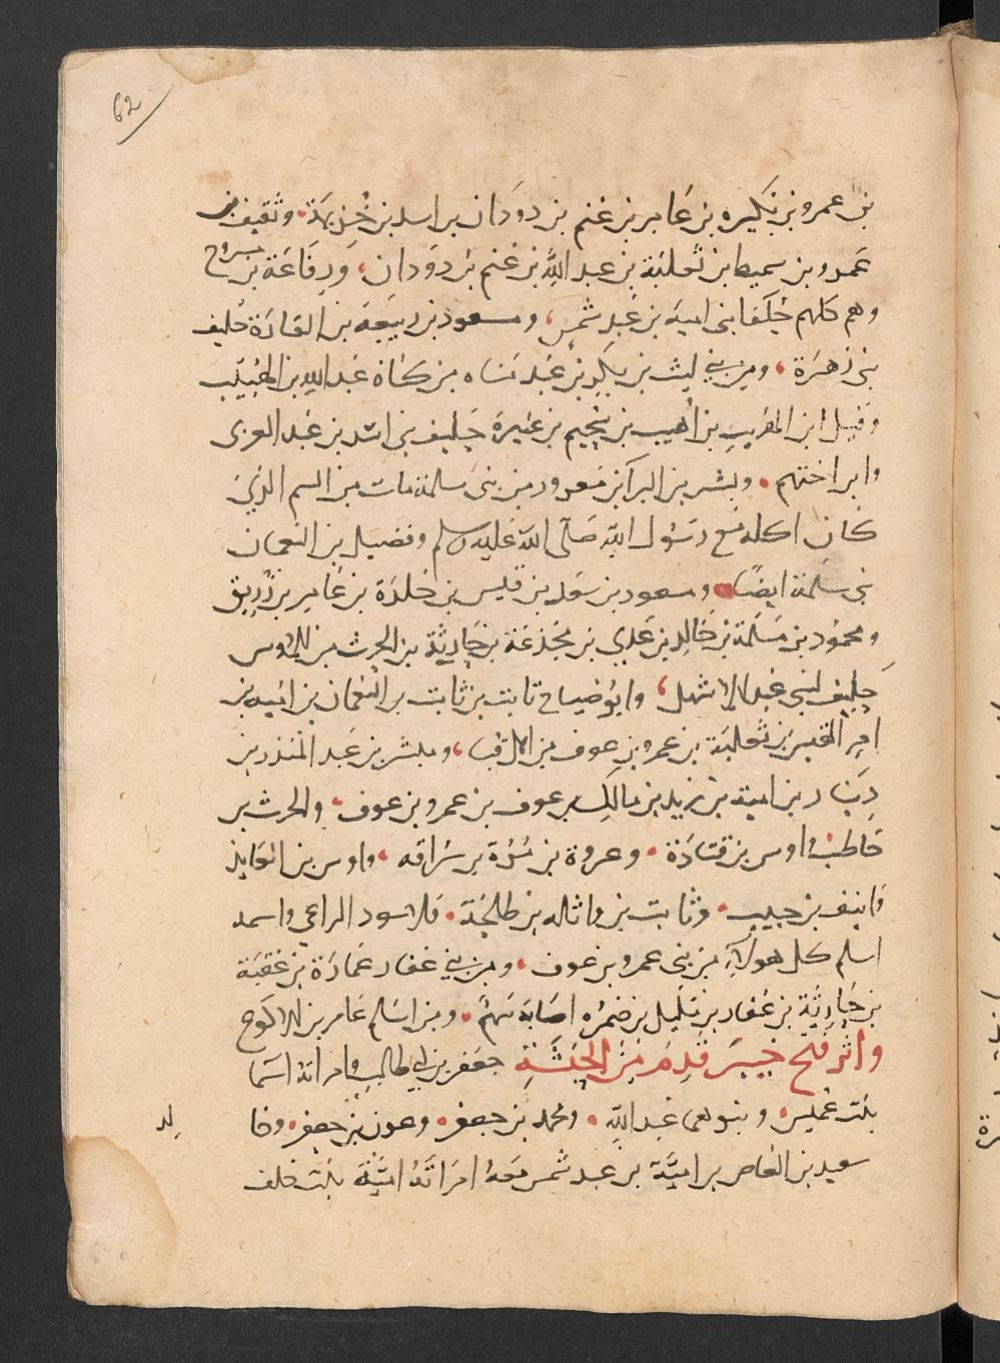 62
بن عمرو بن بكيره بن عامر بن غنم بن دودان بن اسد بن خزيمة، وثقيف بن
عمرو بن سميط بن ثعلبة بن عبد الله بن غنم بن دودان، ورفاعة بن مسروح
وهم كلهم حلفا بنى امية بن عبد شمس، ومسعود بن ربيعة بن القارة حليف
بنى زهرة، ومن بني ليث بن بكر بن عبد مناه بن كنانة عبد الله بن الهبيب
وقيل ابن الهبيب بن أهيب بن سحيم بن غيرة حليف بنى اسد بن عبد العزى
وابن اختهم، وبشر بن البرآ بن معرور من بنى سلمة مات من السم الذي
كان اكله مع رسول الله صلى الله عليه وسلم وفضيل بن النعمان
بنى سلمة ايضًا، ومسعود بن سعد بن قيس بن خلدة بن عامر بن زريق
ومحمود بن مسلمة بن خالد بن عدي بن مجدعة بن حارثة بن الحرث من الاوس
حليف لبنى عبد الاشهل، وابو ضياح ثابت بن ثابت بن النعمان بن اميه بن
امرِ القيس بن ثعلبة بن عمرو بن عوف من الاوس، ومبشر بن عبد المنذر بن
دينار بن امية بن زيد بن مالك بن عوف بن عمرو بن عوف، والحرث بن
حاطب، واوس بن قتادة، وعروة بن مُرّة بن سراقه، واوس بن القايد
وانيف بن حبيب، وثابت بن واثله بن طلحة، فلاسود الراعي واسمه
اسلم كل هولآءِ من بنى عمرو بن عوف، ومن بني غفار عمارة بن عقبة
بن حارثة بن غفار بن مليل بن ضمره اصابه سهمٌ، ومن اسلم عامر بن الاكوع
واثر فتح خيبر قدم من الحبشة جعفر بن ابي طالب وامراته اسما
بنت عميس، وبنوهما عبد الله، ومحمد بن جعفر، وعون بن جعفر، وخا
لد
سعيد بن العاص بن اميّة بن عبد شمس معهُ امراتهُ امينة بنت خلف